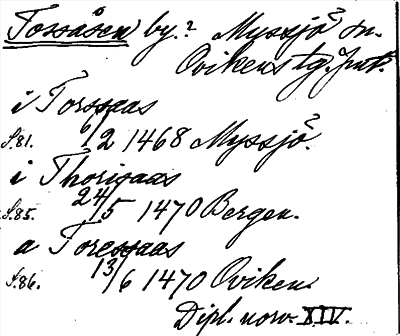 Tossåsen by.? Myssjö? sn.
Ovikens tg. Jmtl.
i Torssaas
S.81. 6/2 1468 Myssjö?
i Thorisaas
S.85. 24/5 1470 Bergen.
a Toressaas
S.86. 13/6 1470 Oviken.
Dipl. norv. XIV.